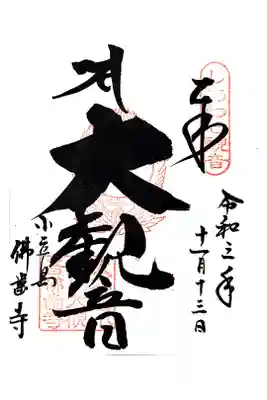 奉
令和三年
十一月十三日
大觀音
小豆島
佛歯寺